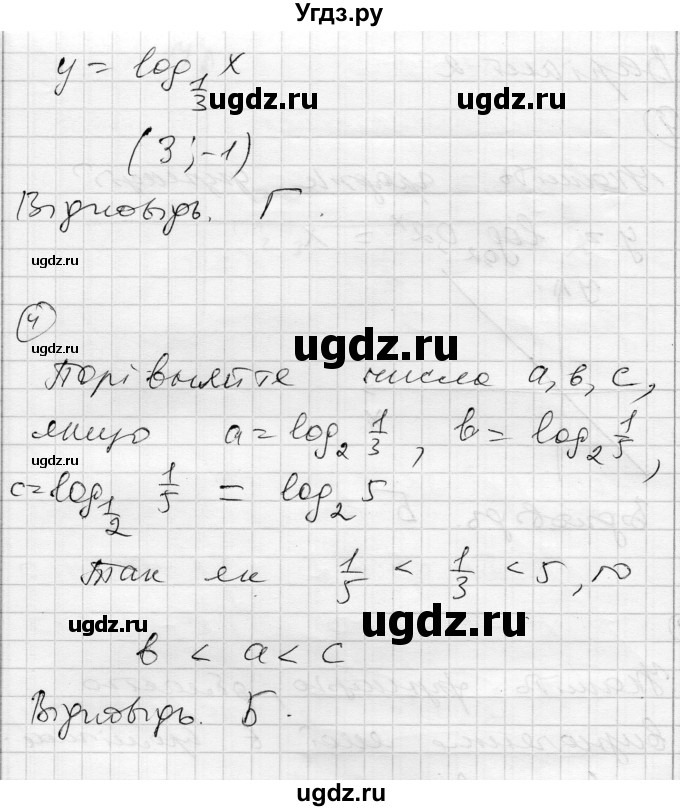 Угдз.ру
y = log_{1/3} x
ugdz.ru
(3; -1)
Відповідь. Г.
ugdz.ru
ugdz.ru
4
ugdz.ru
ugdz.ru
Порівняйте числа a, b, c,
якщо a = log_2 1/3, b = log_2 1/5,
ugdz.ru
c = log_{1/2} 1/5 = log_2 5
Так як 1/5 < 1/3 < 5, то
ugdz.ru
ugdz.ru
b < a < c
Відповідь. Б.
ugdz.ru
Угдз.ру